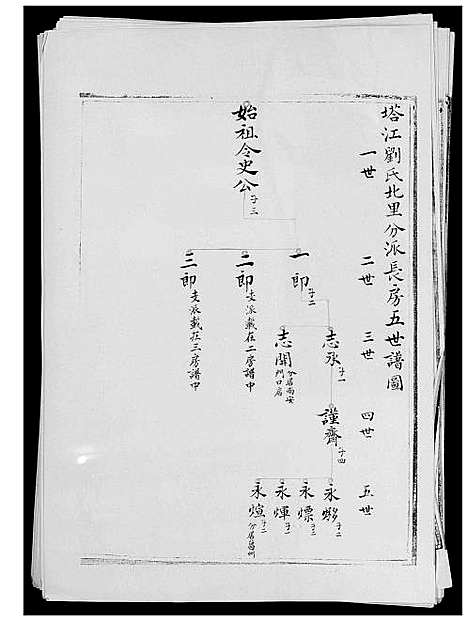 塔江劉氏北里分派長房五世譜圖
一世
二世
三世
四世
五世
始祖令史公
子三
一郎
子二
二郎
支派載在二房譜中
三郎
支派載在三房譜中
志承
子一
志開
分居南安
門口房
謹齊
子四
永
子二
永熛
子三
永煇
子一
永煊
子二
分居